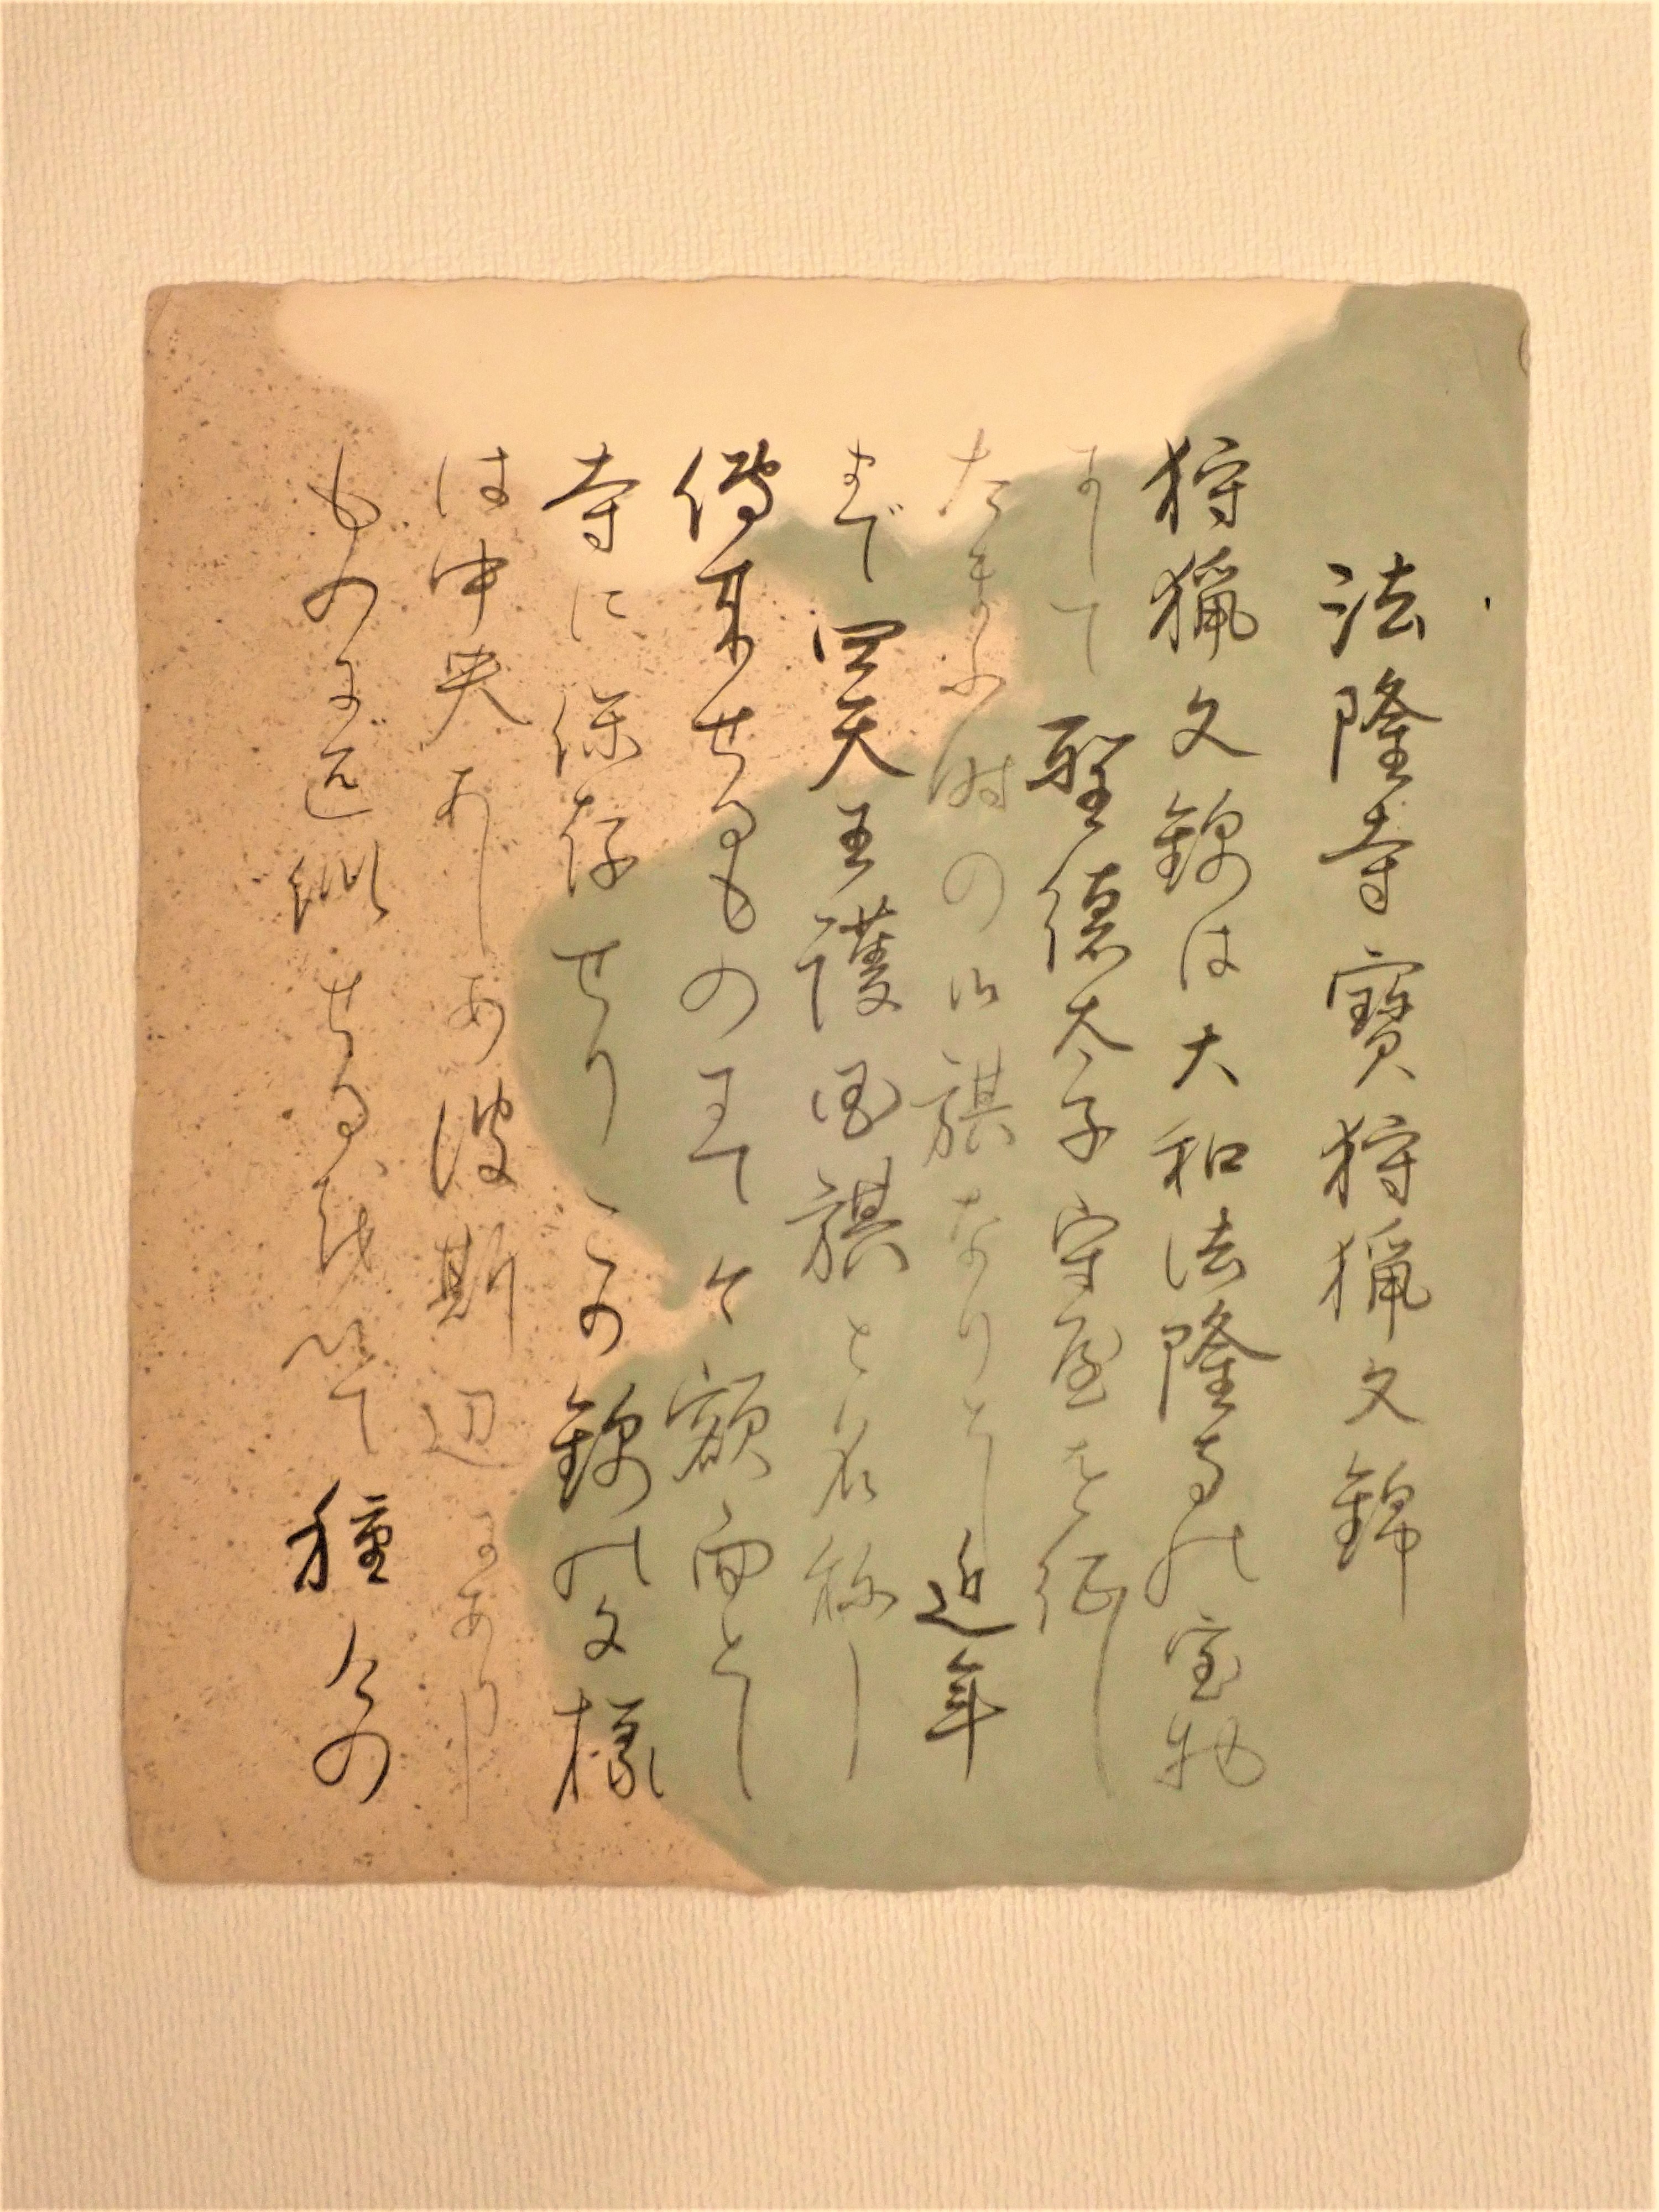 法隆寺寶狩猟文錦
狩猟文錦は大和法隆寺の宝物
にして聖徳太子守屋を征し
たまふ時の御旗なりとし近年
まで四天王護国旗と名称し
傳来せるものにて今額面とし
寺に保存せりこの錦の文様
は中央あじあ波斯辺にありし
もの せるを以て種々の